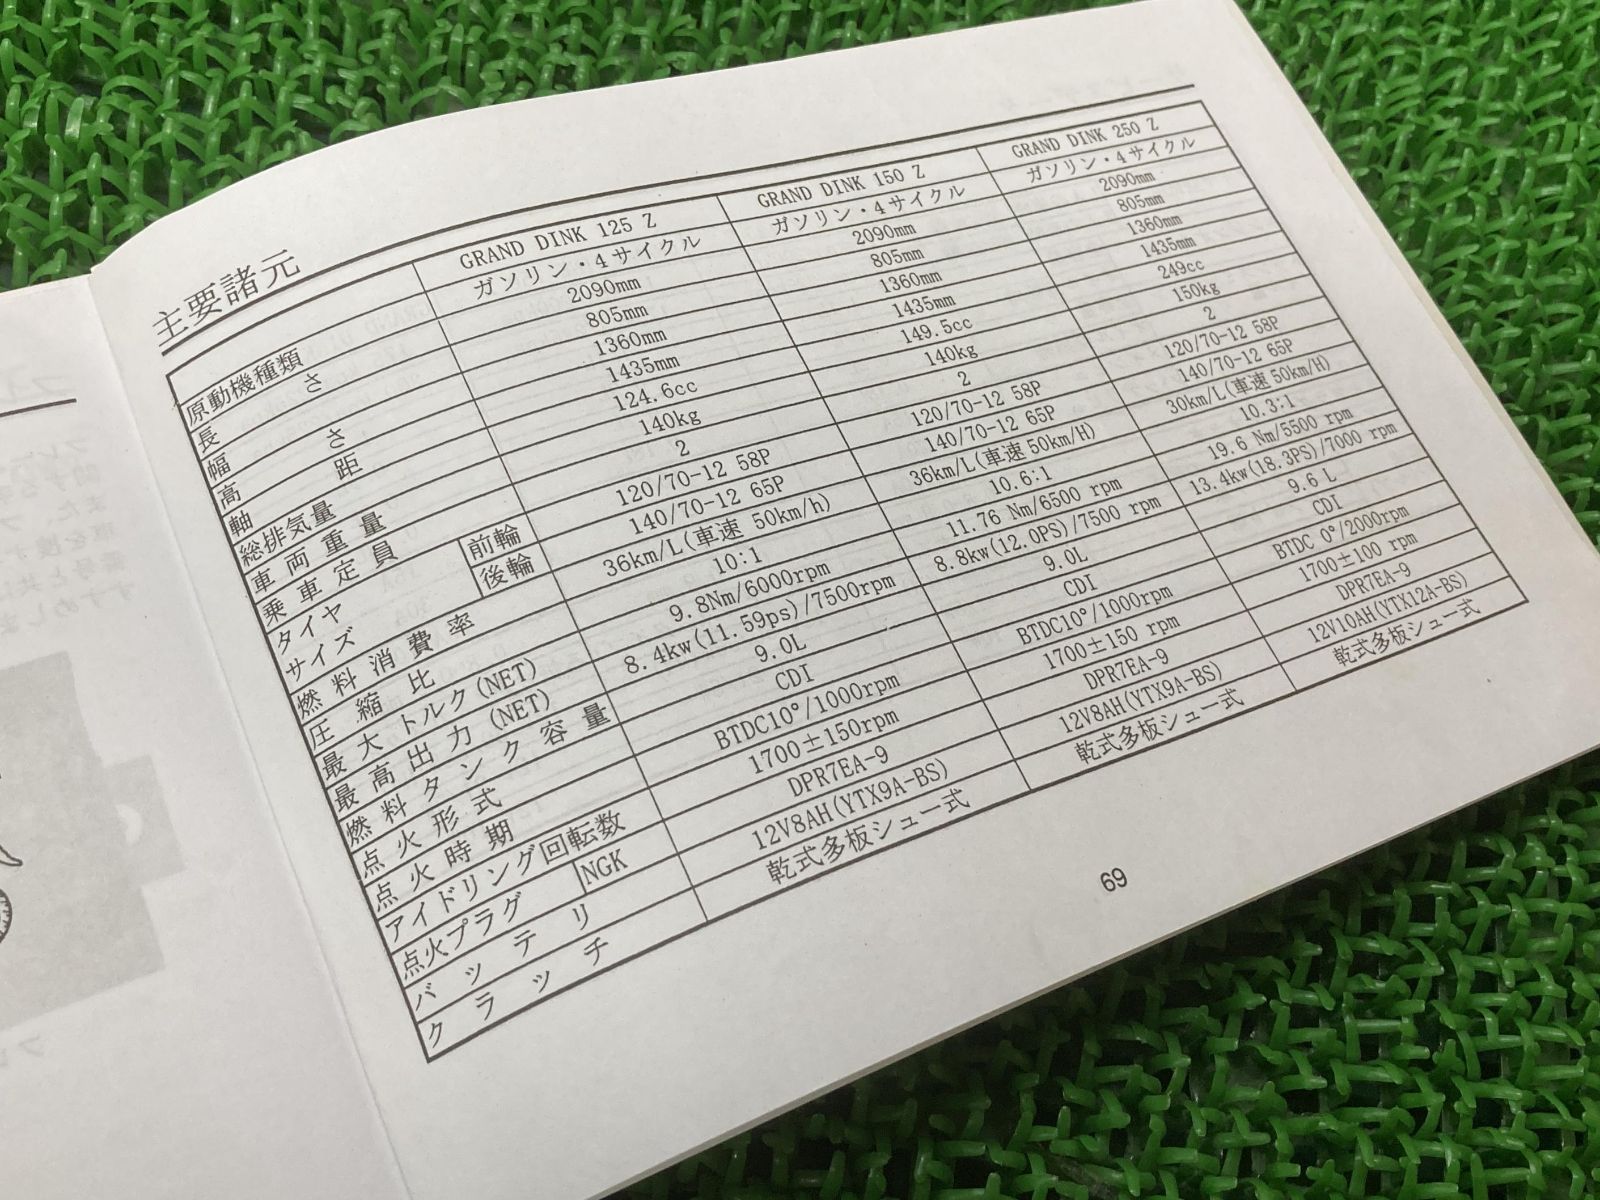 主要諸元
GRAND DINK 125 Z GRAND DINK 150 Z GRAND DINK 250 Z
原動機種類 ガソリン・4サイクル ガソリン・4サイクル ガソリン・4サイクル
長さ 2090mm 2090mm 2090mm
幅 805mm 805mm 805mm
高さ 1360mm 1360mm 1360mm
軸距 1435mm 1435mm 1435mm
総排気量 124.6cc 149.5cc 249cc
車両重量 140kg 140kg 150kg
乗車定員 2 2 2
タイヤ 前輪 120/70-12 58P 120/70-12 58P 120/70-12 58P
サイズ 後輪 140/70-12 65P 140/70-12 65P 140/70-12 65P
燃料消費率 36km/L(車速 50km/h) 36km/L(車速 50km/H) 30km/L(車速 50km/H)
圧縮比 10:1 10.6:1 10.3:1
最大トルク(NET) 9.8Nm/6000rpm 11.76 Nm/6500 rpm 19.6 Nm/5500 rpm
最高出力(NET) 8.4kw(11.59ps)/7500rpm 8.8kw(12.0PS)/7500 rpm 13.4kw(18.3PS)/7000 rpm
燃料タンク容量 9.0L 9.0L 9.6 L
点火形式 CDI CDI CDI
点火時期 BTDC10°/1000rpm BTDC10°/1000rpm BTDC 0°/2000rpm
アイドリング回転数 1700±150rpm 1700±150 rpm 1700±100 rpm
点火プラグ NGK DPR7EA-9 DPR7EA-9 DPR7EA-9
バッテリ 12V8AH(YTX9A-BS) 12V8AH(YTX9A-BS) 12V10AH(YTX12A-BS)
クラッチ 乾式多板シュー式 乾式多板シュー式 乾式多板シュー式
69